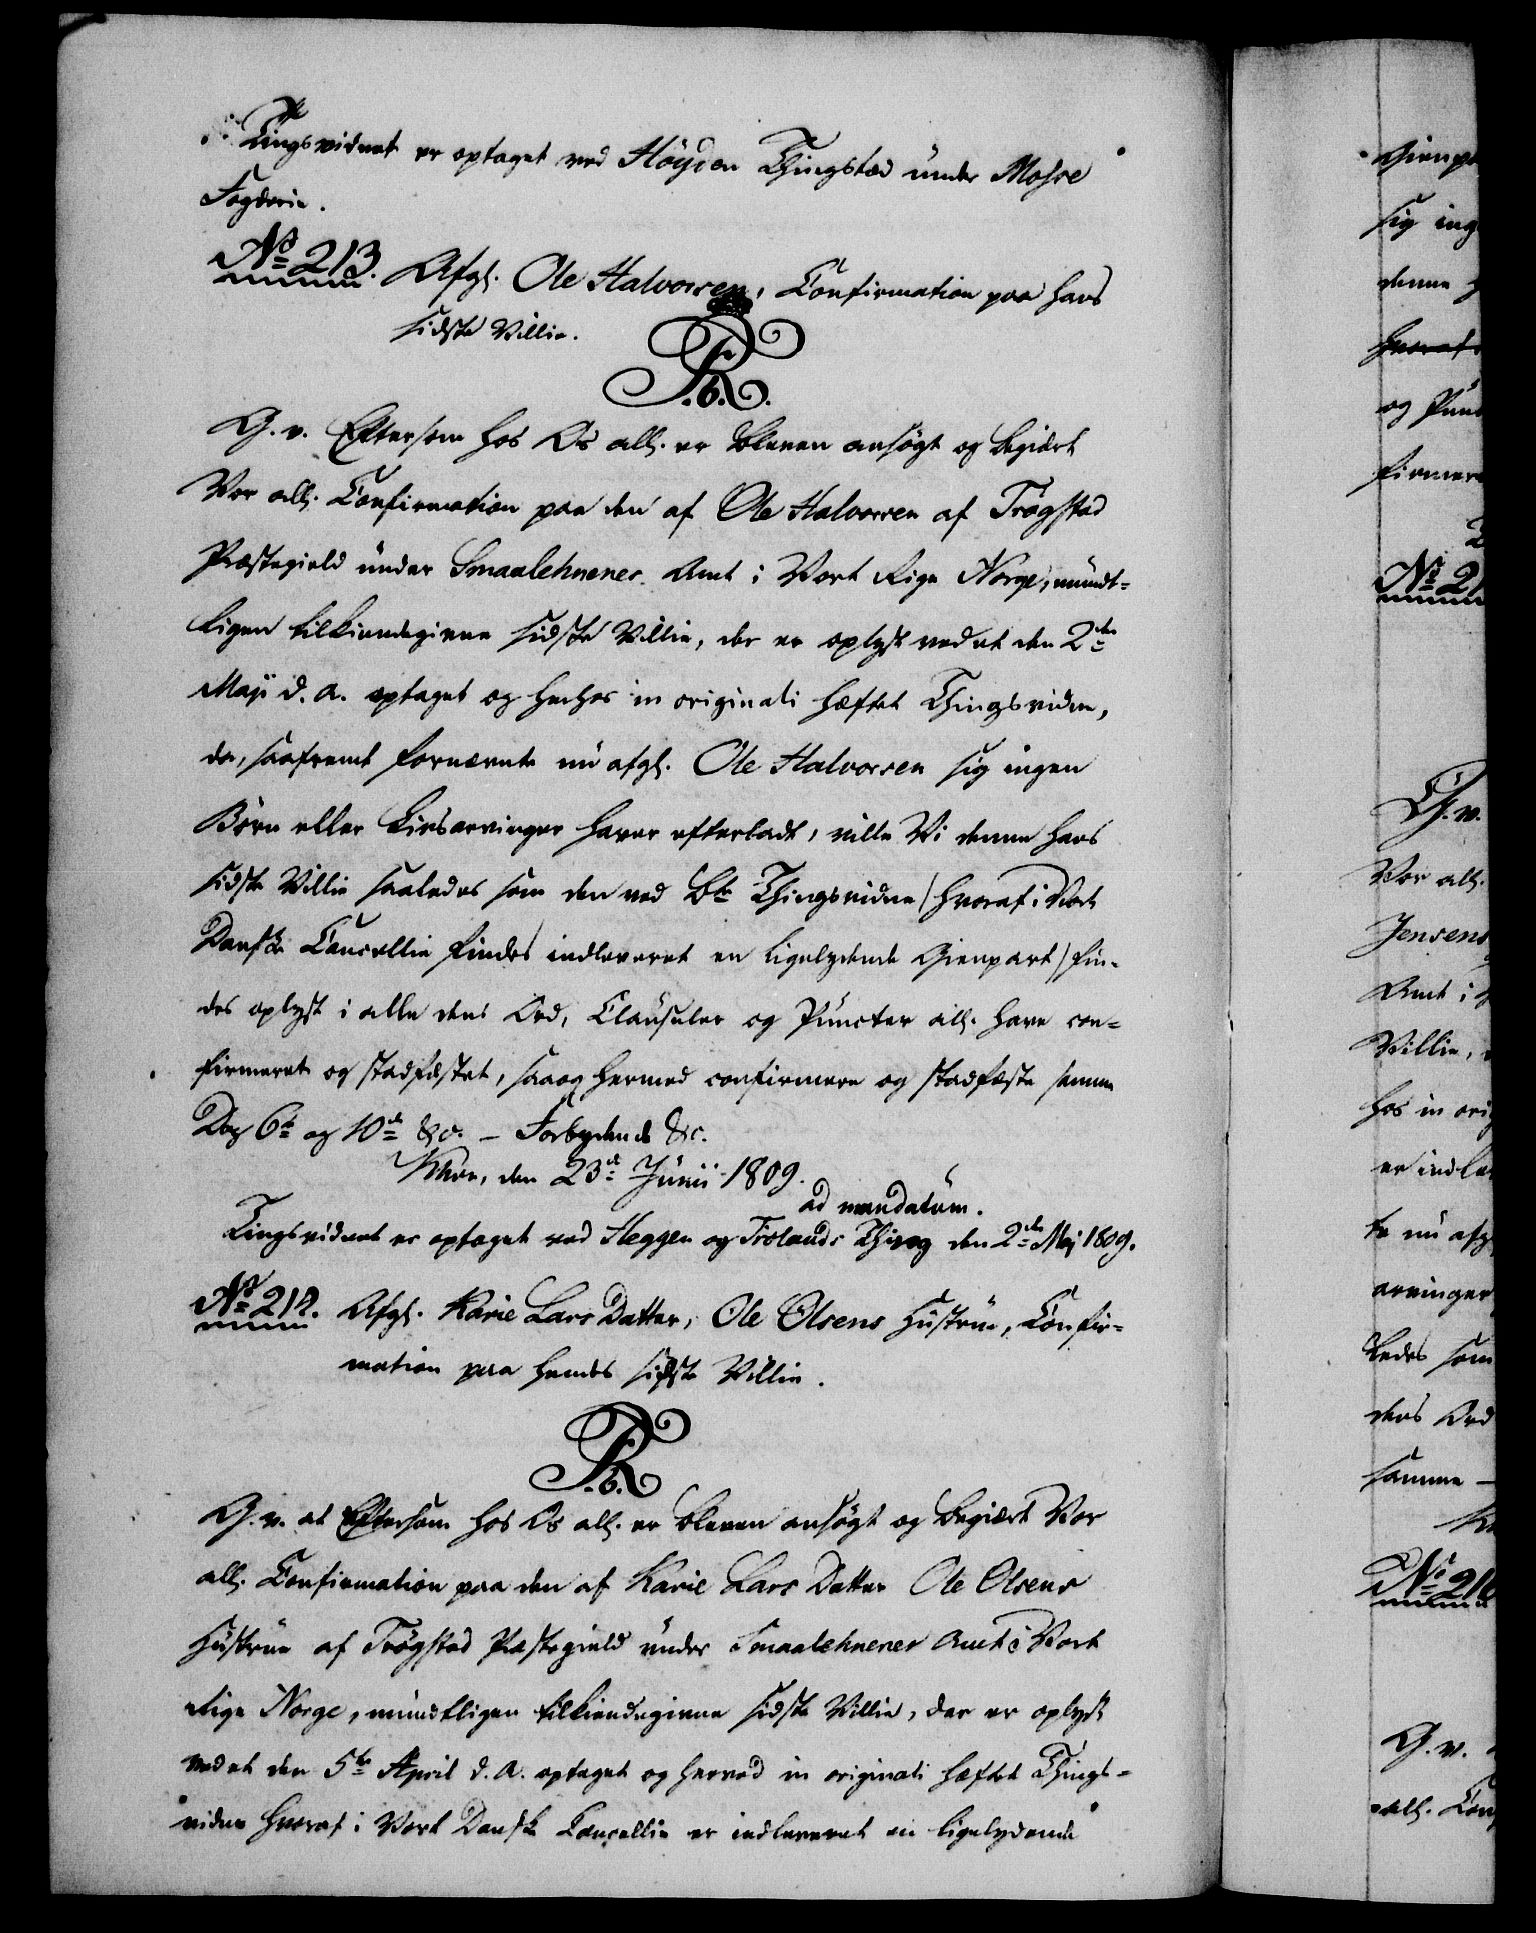 Tingsvidnet er optaget ved Höyden Thingsted under Mosse
Fogderie.
No 213. Afgl. Ole Halvorsen, Confirmation paa hans
sidste Villie.
F.6.R.
G. v. Eftersom hos Os all. er bleven ansögt og begiert
Vor all. Confirmation paa den af Ole Halvorsen af Trögstad
Præstegield under Smaalehnenes Amt i Vort Rige Norge, mundt=
ligen tilkiendegivne sidste Villie, der er oplyst ved et den 2den
Maji d. A. optaget og hechos in originali hæftet Thingsvidne,
da, saafremt fornævnte nu afgl. Ole Halvorsen sig ingen
Børn eller Livsarvinger haver efterladt, ville Vi denne hans
sidste Villie saaledes som den ved bte Thingsvidne /hvoraf i Vort
Danske Cancellie findes indleveret en ligelydende Gienpart/ fin-
des oplyst i alle dens Ord, Clausuler og Puncter all. have con=
firmeret og stadfæstet, saaog hermed confirmere og stadfæste samme
Dog 6te og 10de &c. – Forbydende &c.
Khvn, den 23de Junii 1809.
ad mandatum.
Tingsvidnet er optaget ved Heggen og Frölands Thing den 2den Maj 1809.
No 214. Afgl. Karie Lars Datter, Ole Olsens Hustrue, Confir=
mation paa hendes sidste Villie.
F.6.R.
G. v. at Eftersom hos Os all. er bleven ansögt og begiert Vor
all. Confirmation paa den af Karie Lars Datter Ole Olsens
Hustrue af Trögstad Præstegield under Smaalehnenes Amt i Vort
Rige Norge, mundtligen tilkiendegivne sidste Villie, der er oplyst
ved et den 5te April d. A. optaget og herved in originali hæftet Things=
vidne hvoraf i Vort Danske Cancellie er indleveret en ligelydende
Gienp
sig ing
denne
hvoraf
og Pun
firmere
No 21
G. v.
Vor all.
Jensens
Amt i
Villie,
hos in orig
er indle
te nu afg
arvinger
ledes som
dens Ord
samme –
No 216
G. v.
all. Con